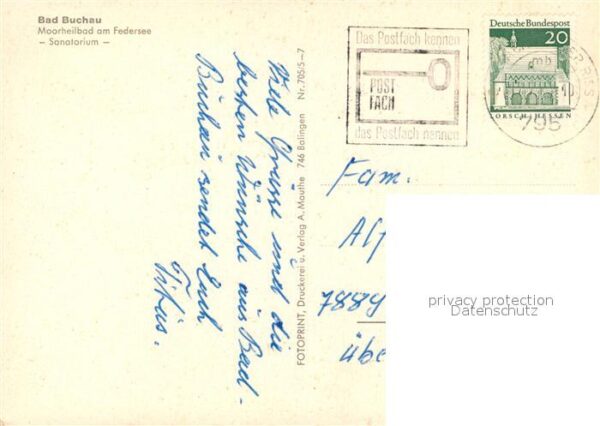 Bad Buchau
Moorheilbad am Federsee
– Sanatorium –
Viele Grüsse und die
besten Wünsche aus Bad-
Buchau sendet Euch
Titus.
FOTOPRINT, Druckerei u. Verlag A. Mauthe 746 Balingen Nr. 705/5–7
Das Postfach kennen
POST
FACH
das Postfach nennen
Deutsche Bundespost
20
LORSCH/HESSEN
mb
795
Fam.
7889
übe
privacy protection
Datenschutz